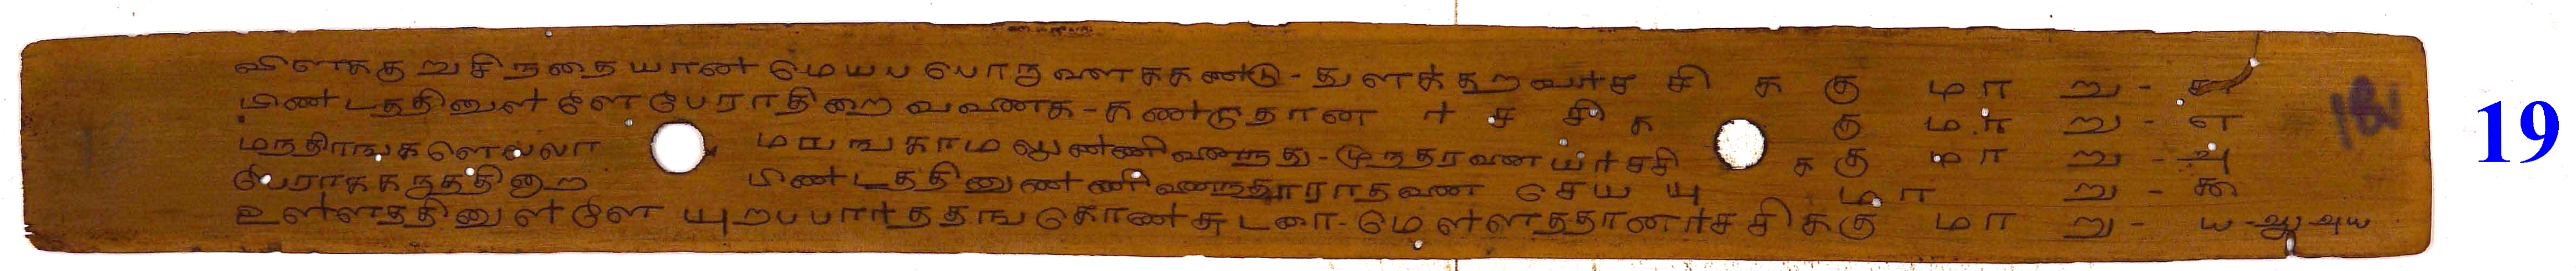 விளககுறுசிநதையான மெயபபொருளைககண்டு-துளக்கறவர்சசிககுமாறு-௬
பிண்டததினுள்ளேபேராதிறைவனைக-கண்டுதான ர்சசிககுமாறு-௭
மநதிரஙகளெலலா மயஙகாமலுண்ணினைநது-முநதரவனயர்சசிககுமாறு-௮
பேராககருததினாற பிண்டததினுண்ணினைநதாராதவனை செயயுமாறு-௯
உள்ளததினுள்ளே யுறபபார்த்தங கொண்சுடரை-மெள்ளத்தானர்சசிககுமாறு-ய-ஆ அய
19